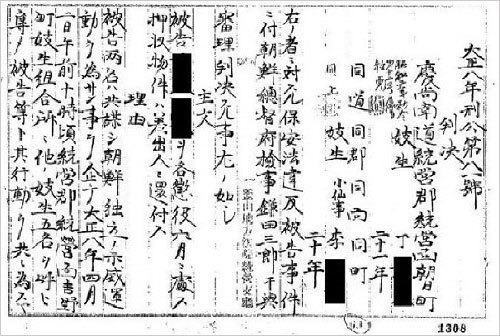 大正八年刑公第八八號
判決
慶尚南道統營郡統營面朝日町
妓生
丁
二十一年
同道同郡同面同町
同上 妓生 小仙事 李
二十年
右ノ者ニ對スル保安法違反被告事件
ニ付朝鮮總督府檢事鎌田三郎干與
審理判決スル事左ノ如シ
主文
被告 ヲ各懲役六月ニ處ス
押収物件ハ差出人ニ還付ス
理由
被告両名ハ共謀シ朝鮮獨立ノ示威運
動ヲ為サン事ヲ企テ大正八年四月
日午前十時頃統營郡統營面吉野
町妓生組合所ニ他ノ妓生五名ヲ呼ヒ
被告等ト其行動ヲ共ニ為ス
1308